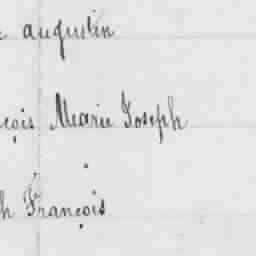 augustin
çois Marie Joseph
h François